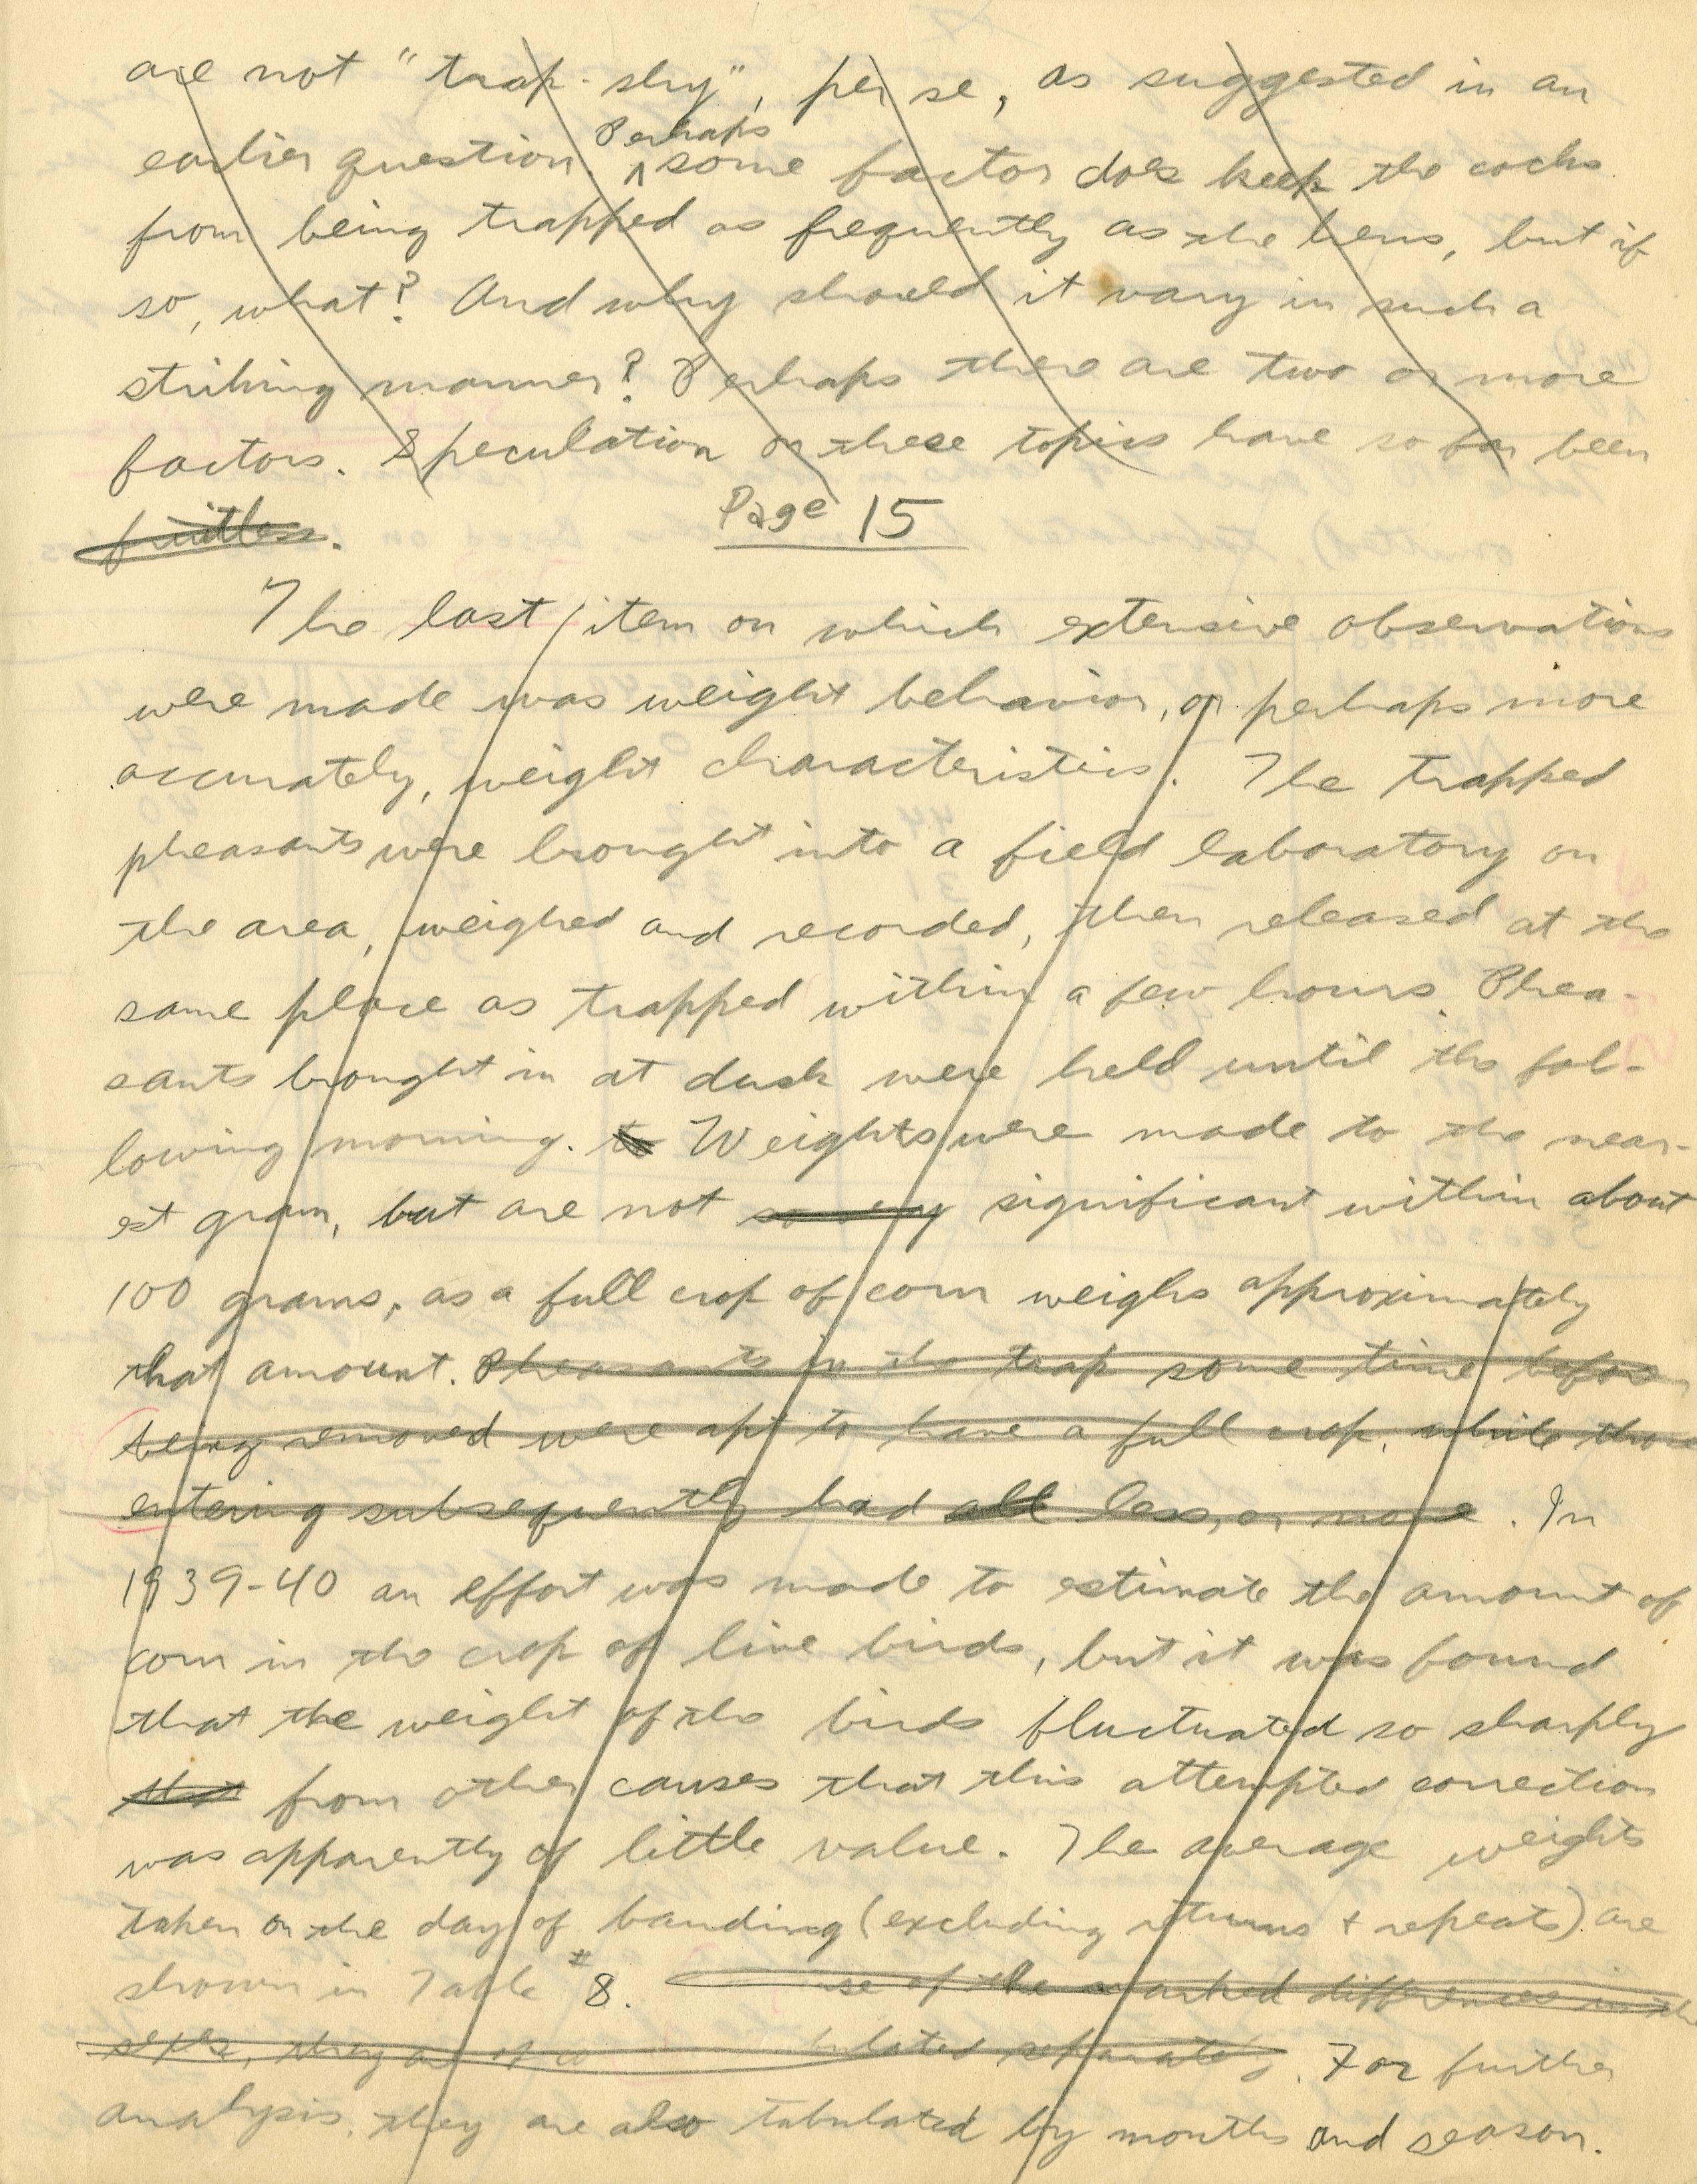 are not "trap-shy", per se, as suggested in an
earlier question. Perhaps some factor does keep the cocks
from being trapped as frequently as the hens, but if
so, what? And why should it vary in such a
striking manner? Perhaps there are two or more
factors. Speculation on these topics have so far been
fruitless.
Page 15
The last item on which extensive observations
were made was weight behavior, or perhaps more
accurately, weight characteristics. The trapped
pheasants were brought into a field laboratory on
the area, weighed and recorded, then released at the
same place as trapped within a few hours. Phea-
sants brought in at dusk were held until the fol-
lowing morning. to Weights were made to the near-
est gram, but are not so very significant within about
100 grams, as a full crop of corn weighs approximately
that amount. Pheasants in the trap some time before
being removed were apt to have a full crop, while those
entering subsequently had all less, or none. In
1939-40 an effort was made to estimate the amount of
corn in the crop of live birds, but it was found
that the weight of the birds fluctuated so sharply
that from other causes that this attempted correction
was apparently of little value. The average weights
taken on the day of banding (excluding returns + repeats) are
shown in Table #8. use of the marked differences in the
sexes, they are of co bulated separately. For further
analysis, they are also tabulated by months and season.